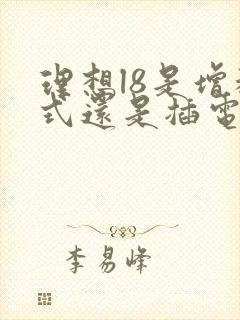 理想l8是增
式還是插電
李易峰